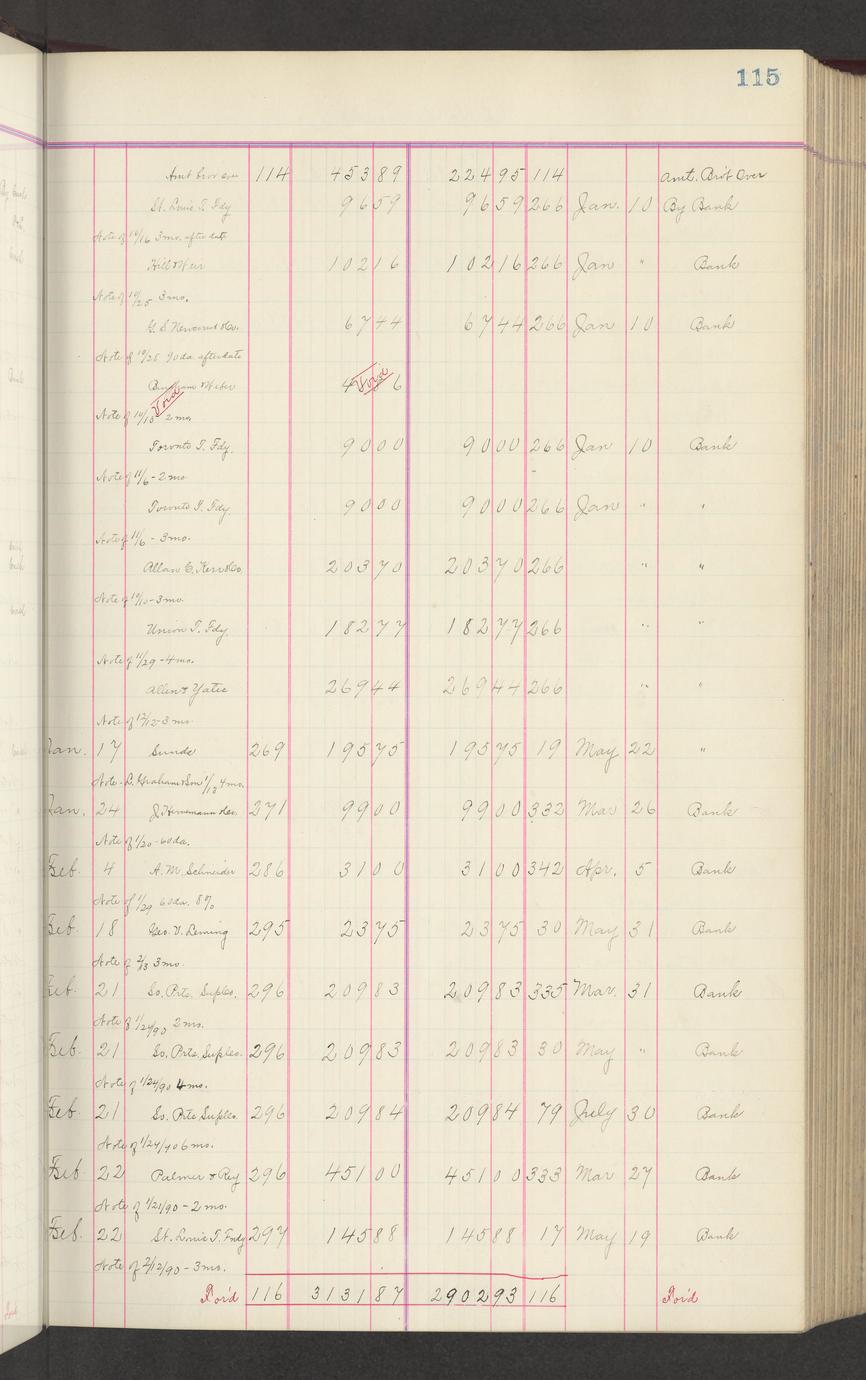 115
Amt brov over 114 453 89 224 95 114 Amt. Bro't Over
St. Louis T. Fdy 96 59 96 59 266 Jan. 10 By Bank
Note of 10/16 3mo. after date
Hill & Weir 102 16 102 16 266 Jan " Bank
Note of 10/25 3mo.
G. S. & Co. 67 44 67 44 266 Jan 10 Bank
Note of 10/28 90da. after date
Weber Void
Void
Note of 2 mo.
Toronto T. Fdy. 90 00 90 00 266 Jan 10 Bank
Note of 11/6 - 2mo
Toronto T. Fdy. 90 00 90 00 266 Jan " "
Note of 11/6 - 3mo.
Allan C. Kerr & Co. 203 70 203 70 266 " "
Note of 10/10 - 3mo.
Union T. Fdy. 182 77 182 77 266 " "
Note of 11/29 - 4mo.
Allen & Yates 269 44 269 44 266 " "
Note of 12/12 - 3mo.
Jan. 17 Sunds 269 195 75 195 75 19 May 22 "
Note - L. Graham & Son 1/13 4mo.
Jan. 24 J. & Co. 271 99 00 99 00 332 Mar 26 Bank
Note of 1/20 - 60da.
Feb. 4 A. M. Schneider 286 31 00 31 00 342 Apr. 5 Bank
Note of 1/29 60da. 8%
Feb. 18 Geo. V. Leming 295 23 75 23 75 30 May 31 Bank
Note of 2/13 3mo.
Feb. 21 So. Prts. Suples. 296 209 83 209 83 335 Mar. 31 Bank
Note of 1/24/90 2mo.
Feb. 21 So. Prts. Suples. 296 209 83 209 83 30 May " Bank
Note of 1/24/90 4mo.
Feb. 21 So. Prts Suples. 296 209 84 209 84 79 July 30 Bank
Note of 1/24/90 6mo.
Feb. 22 Palmer & Rey 296 451 00 451 00 333 Mar 27 Bank
Note of 1/21/90 - 2mo.
Feb. 22 St. Louis T. Fndy 297 145 88 145 88 17 May 19 Bank
Note of 2/12/90 - 3mo.
For'd 116 3131 87 2902 93 116 For'd